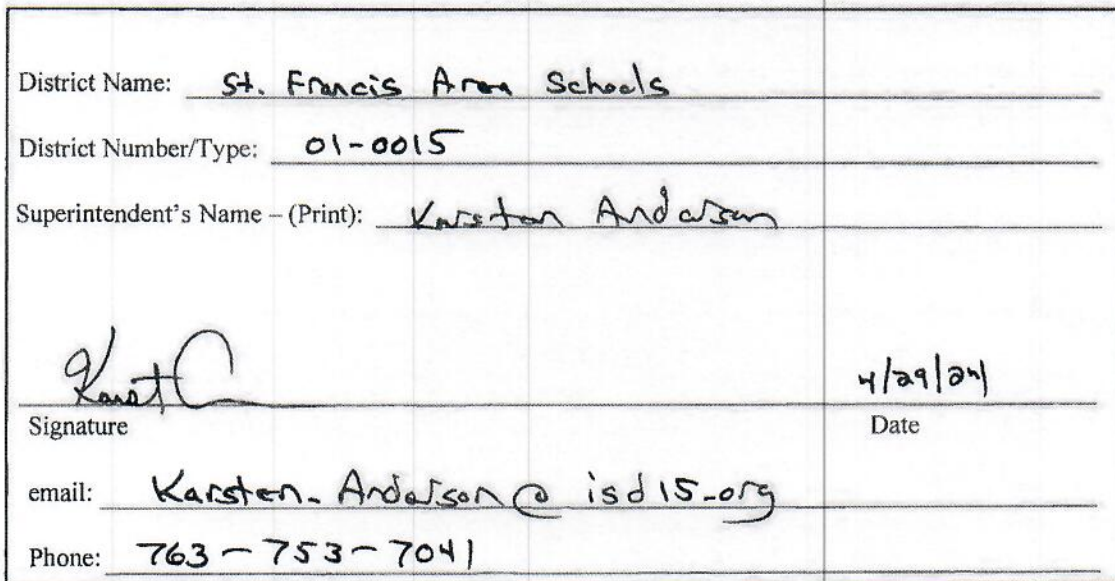 District Name: St. Francis Area Schools
District Number/Type: 01-0015
Superintendent's Name – (Print): Karsten Anderson
4/29/24
Signature Date
email: Karsten.Anderson@isd15.org
Phone: 763-753-7041